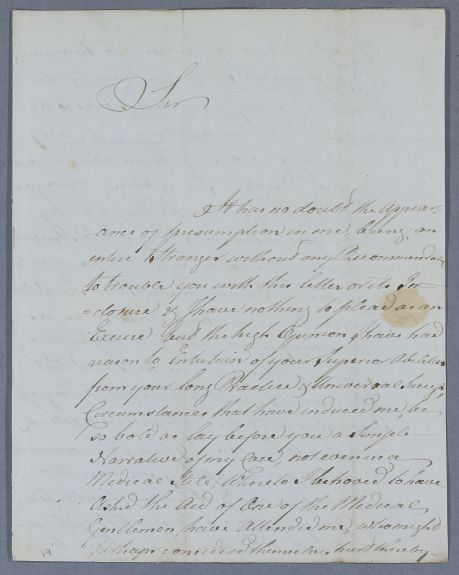 Sir
It has no doubt the Appear-
ance of presumption in me, being an
intire Stranger without any Recommendat
to trouble you with this letter or its In-
=closure & I have nothing to plead as an
Excuse but the high Opinion I have had
reason to Entertain of your Superior Abilities
from your long Practice & Universal Success,
Circumstances that have induced me be
so bold as lay before you a Simple
Narrative of my Case, not even in a
Medical Stile Whereto I behoved to have
Asked the Aid of One of the Medical
Gentlemen, have Attended me, who might
perhaps considered themselves hurt thereby
19